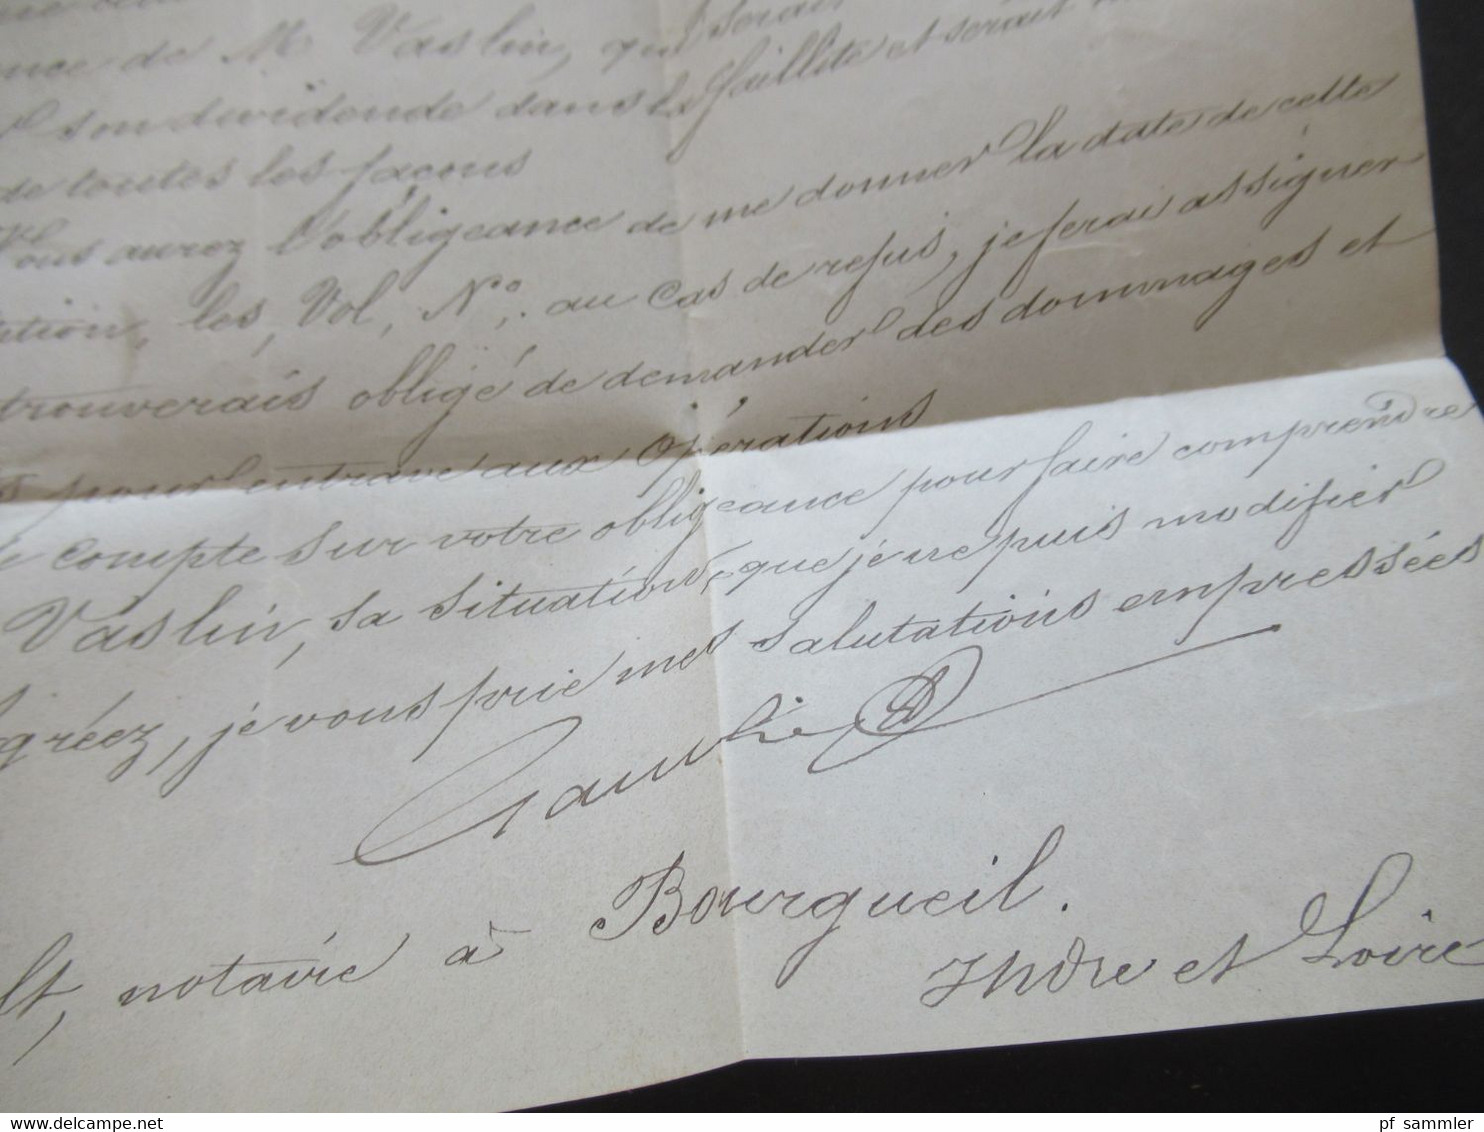 de M. Vaslin, qui serait
son dividende dans la faillite et serait
de toutes les façons
Vous aurez l'obligeance de me donner la date de cette
les, Vol, N°. au cas de refus, je ferai assigner
trouverais obligé de demander des dommages et
pour entrave aux opérations
compte sur votre obligeance pour faire comprendre
Vaslin, sa situation, que je ne puis modifier
Agréez, je vous prie mes salutations empressées
notaire à Bourgueil.
Indre et Loire
www.delcampe.net
pf_sammler